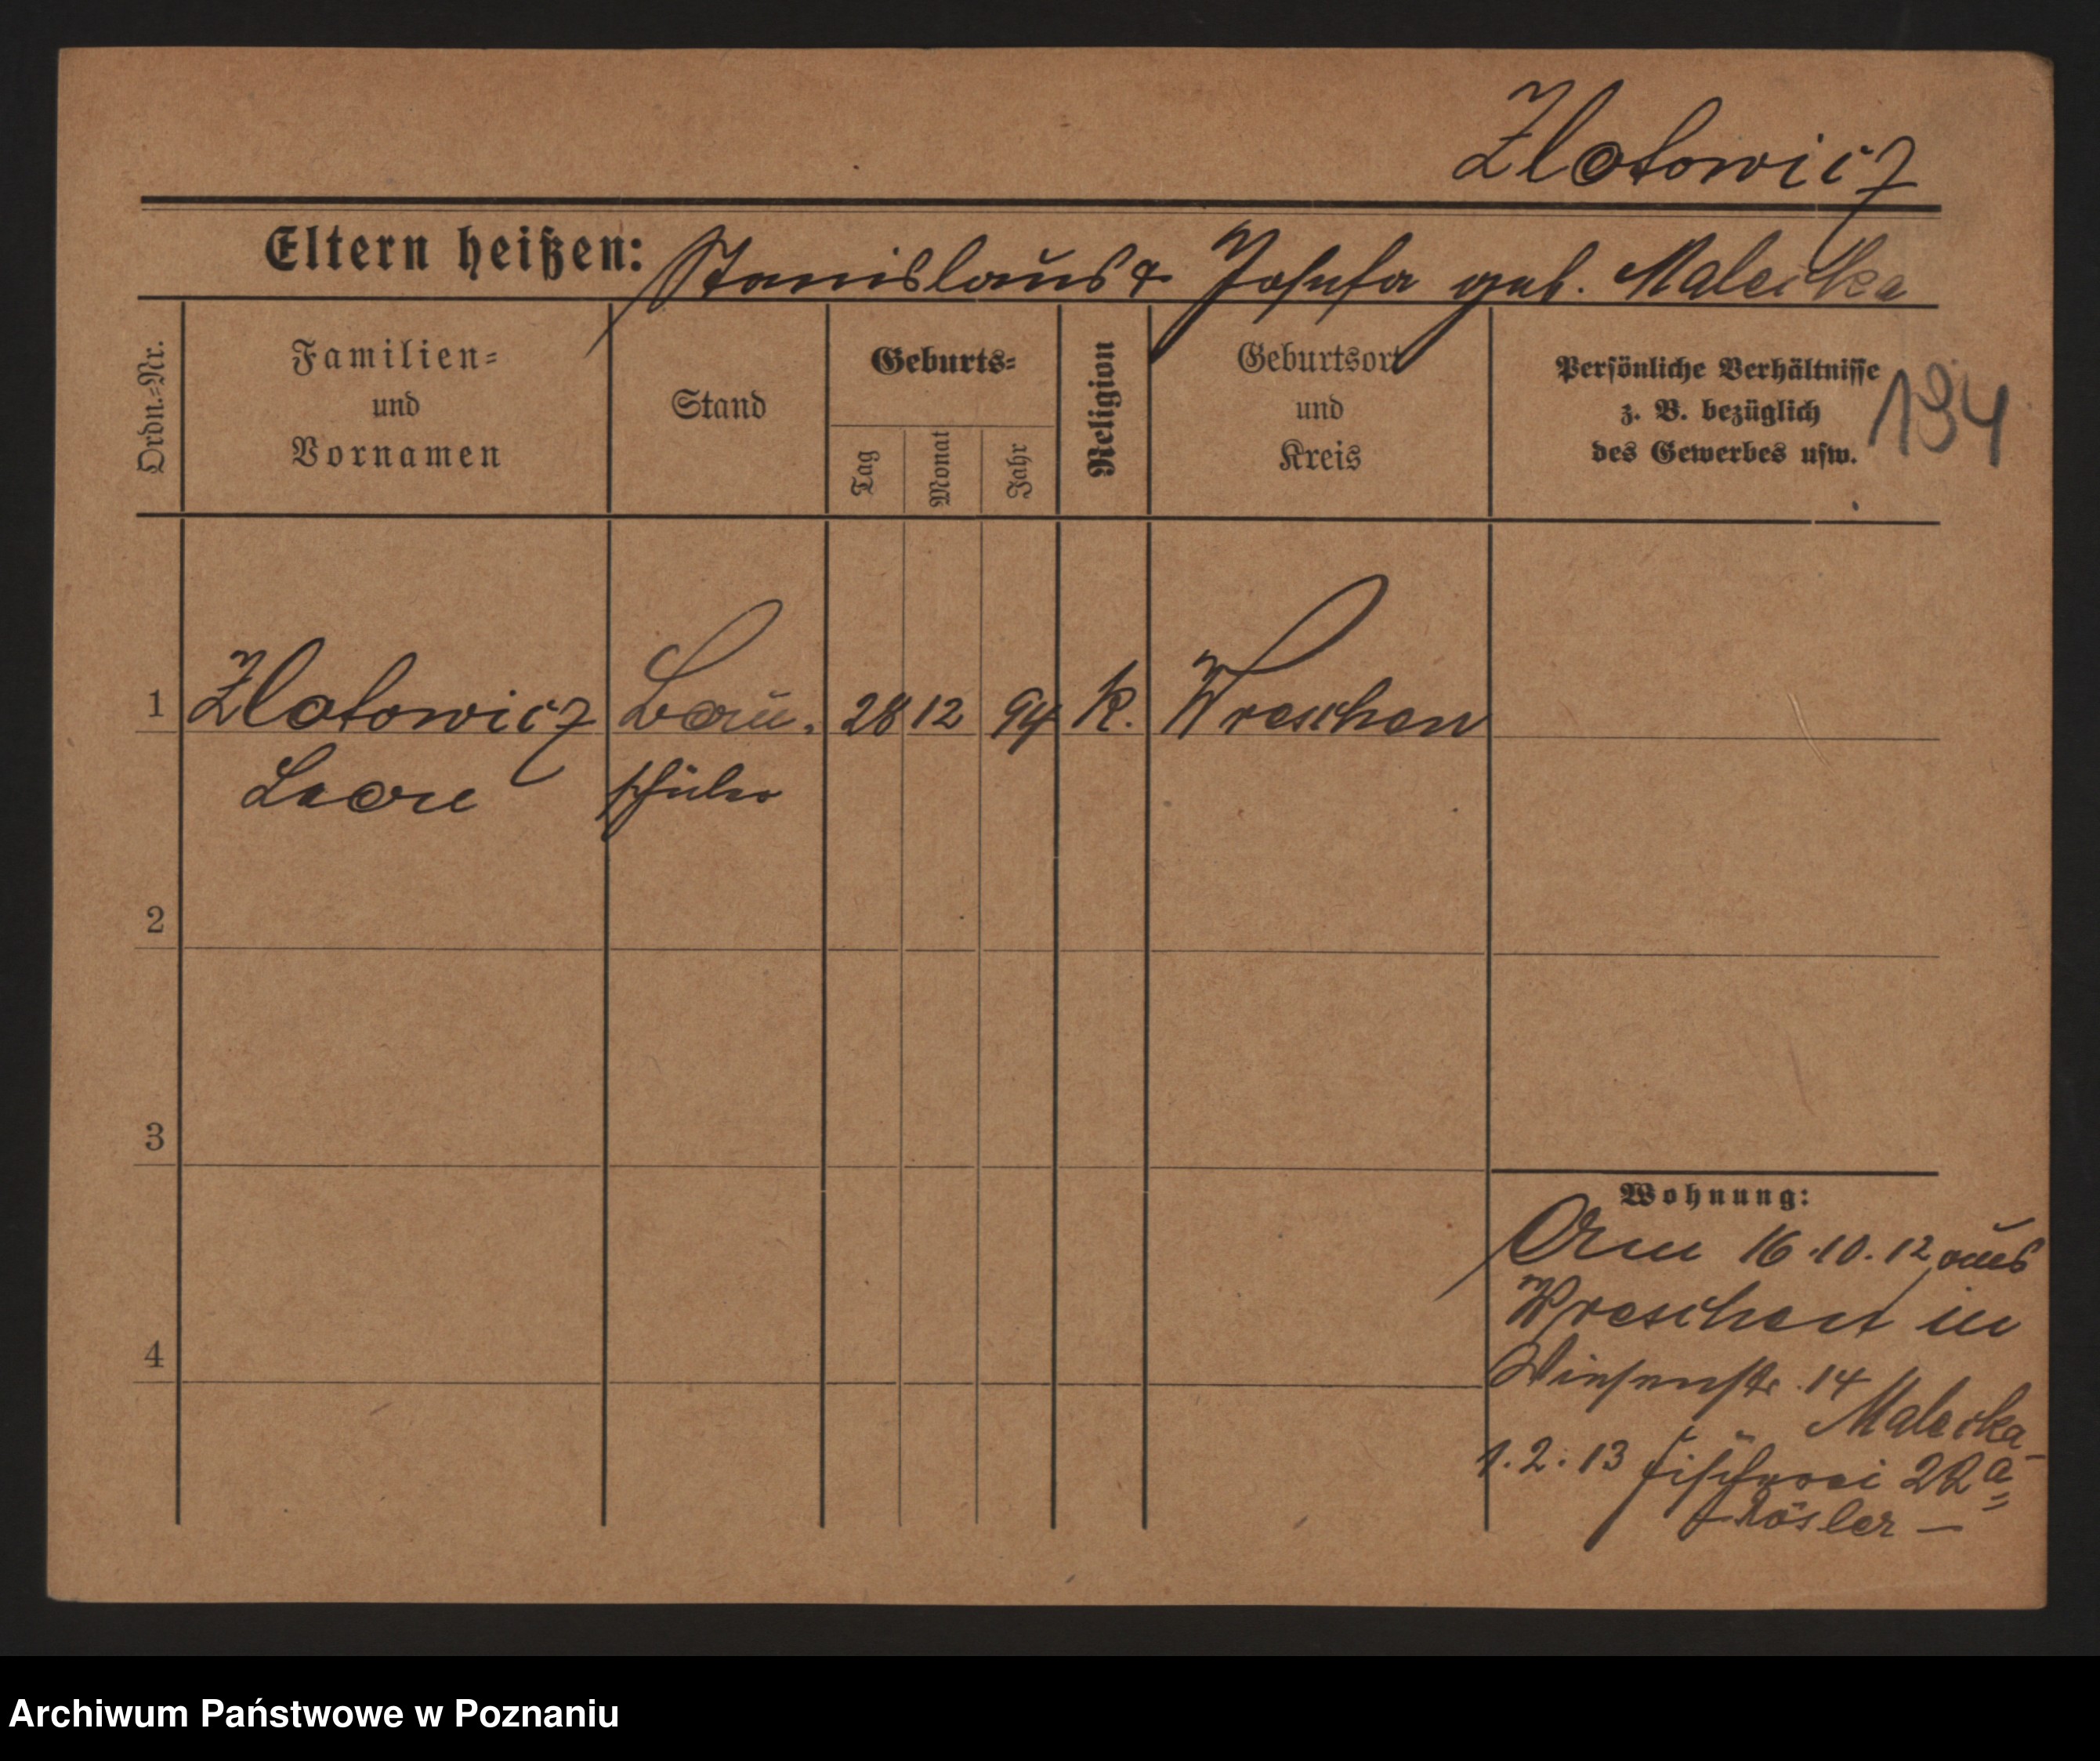 Zlotowicz
Eltern heißen: Stanislaus & Josefa geb. Malecka
Ordn.=Nr.
Familien=
und
Vornamen
Stand
Geburts=
Tag
Monat
Jahr
Religion
Geburtsort
und
Kreis
Persönliche Verhältnisse
z. B. bezüglich
des Gewerbes usw.
194
1 Zlotowicz Bau- 28 12 94 K. Wreschen
Leon schüler
2
3
4
Wohnung:
16.10.12 aus
Wreschen in
Wiesenstr. 14
Malecka
1.2.13 Fischerei 22a
Rösler —
Archiwum Państwowe w Poznaniu